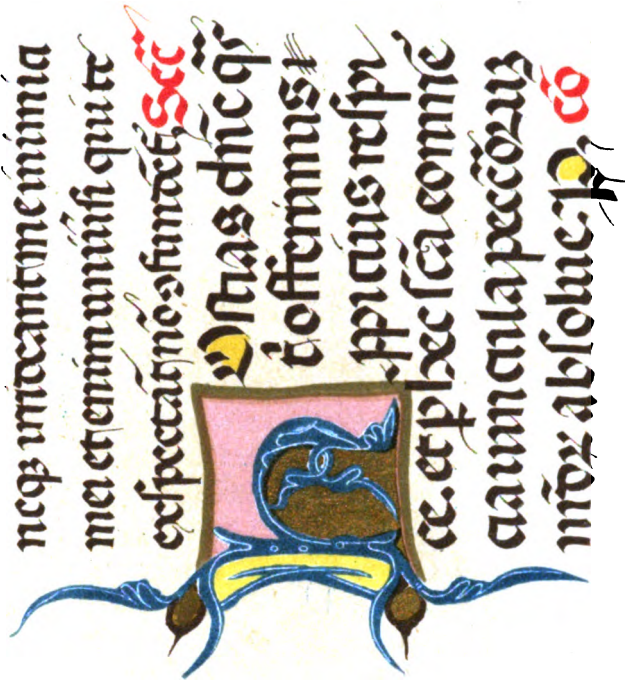 neqꝫ irrideant me inimici
mei et enim uniũsi qui te
exspectãt nõ ꝯfundẽt. Sec̃
HOstias dñe q̃s
t̃ offerimus
ꝓpicius respi
ce. et ꝑ hec sc̃a com̃e
cia uincula pecc̃oꝝ
nr̃oꝝ absolue. P. Cõ